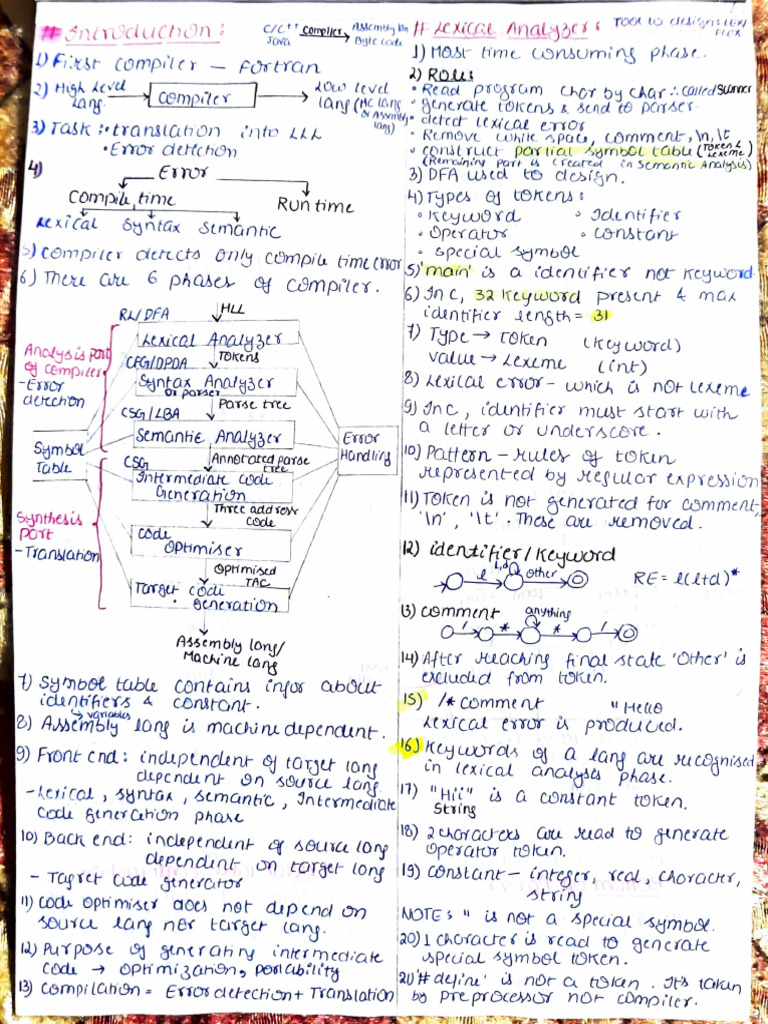 # Introduction:
C/C++ Compiler Assembly lan
Java Byte code
1) First compiler – Fortran
2) High Level Lang. → Compiler → Low level lang (MC lang or Assembly lang)
3) Task: • translation into LLL
• Error detection
4) Error
Compile time Run time
Lexical Syntax Semantic
5) Compiler detects only compile time error
6) There are 6 phases of compiler.
HLL
RL/DFA
Lexical Analyzer
Tokens
CFG/DPDA
Syntax Analyzer
or parser
Parse tree
CSG/LBA
Semantic Analyzer
Annotated parse tree
CSG
Intermediate code Generation
Three address code
Code Optimiser
Optimised TAC
Target code generation
Assembly lang/
Machine lang
Analysis part of compiler
- Error detection
Symbol Table
Synthesis part
- Translation
Error Handling
7) Symbol table contains infor about
identifiers & constant.
↳ variables
8) Assembly lang is machine dependent.
9) Front end: independent of target lang
dependent on source lang.
- Lexical, syntax, semantic, Intermediate
code generation phase
10) Back end: independent of source lang
dependent on target lang
- Tagret code generator
11) Code optimiser does not depend on
source lang nor target lang.
12) Purpose of generating intermediate
code → optimization, portability
13) Compilation = Error detection + Translation
# Lexical Analyzer:
Tool to design: LEX/
FLEX
1) Most time consuming phase.
2) Role:
• Read program char by char ∴ called scanner
• generate tokens & send to parser.
• detect lexical error
• Remove white space, comment, \n, \t
• construct partial symbol table (Token & Lexeme)
(Remaining part is created in semantic Analysis)
3) DFA used to design.
4) Types of tokens:
• Keyword • Identifier
• Operator • Constant
• special symbol
5) 'main' is a identifier not keyword.
6) In C, 32 keyword present & max
identifier length = 31
7) Type → Token (Keyword)
value → Lexeme (int)
8) Lexical error – which is not lexeme
9) In C, identifier must start with
a letter or underscore.
10) Pattern – rules of token
represented by regular expression
11) Token is not generated for comment,
'\n', '\t'. These are removed.
12) identifier/Keyword
l l,d other RE = l(l+d)*
13) comment
/ * anything * /
14) After reaching final state 'Other' is
excluded from token.
15) /* comment "Hello
Lexical error is produced.
16) Keywords of a lang are recognised
in lexical analysis phase.
17) "Hii" is a constant token.
String
18) 2 characters are read to generate
operator token.
19) Constant – integer, real, character,
string
NOTE: " is not a special symbol.
20) 1 character is read to generate
special symbol token.
21) '# define' is not a token. It's taken
by preprocessor not compiler.